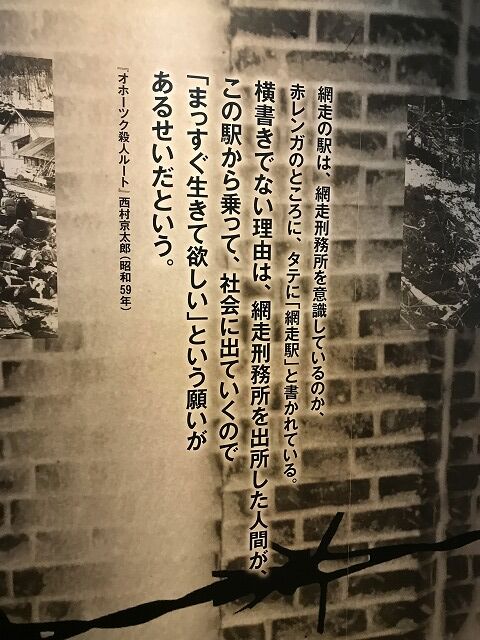 網走の駅は、網走刑務所を意識しているのか、
赤レンガのところに、タテに「網走駅」と書かれている。
横書きでない理由は、網走刑務所を出所した人間が、
この駅から乗って、社会に出ていくので
「まっすぐ生きて欲しい」という願いが
あるせいだという。
『オホーツク殺人ルート』西村京太郎（昭和59年）